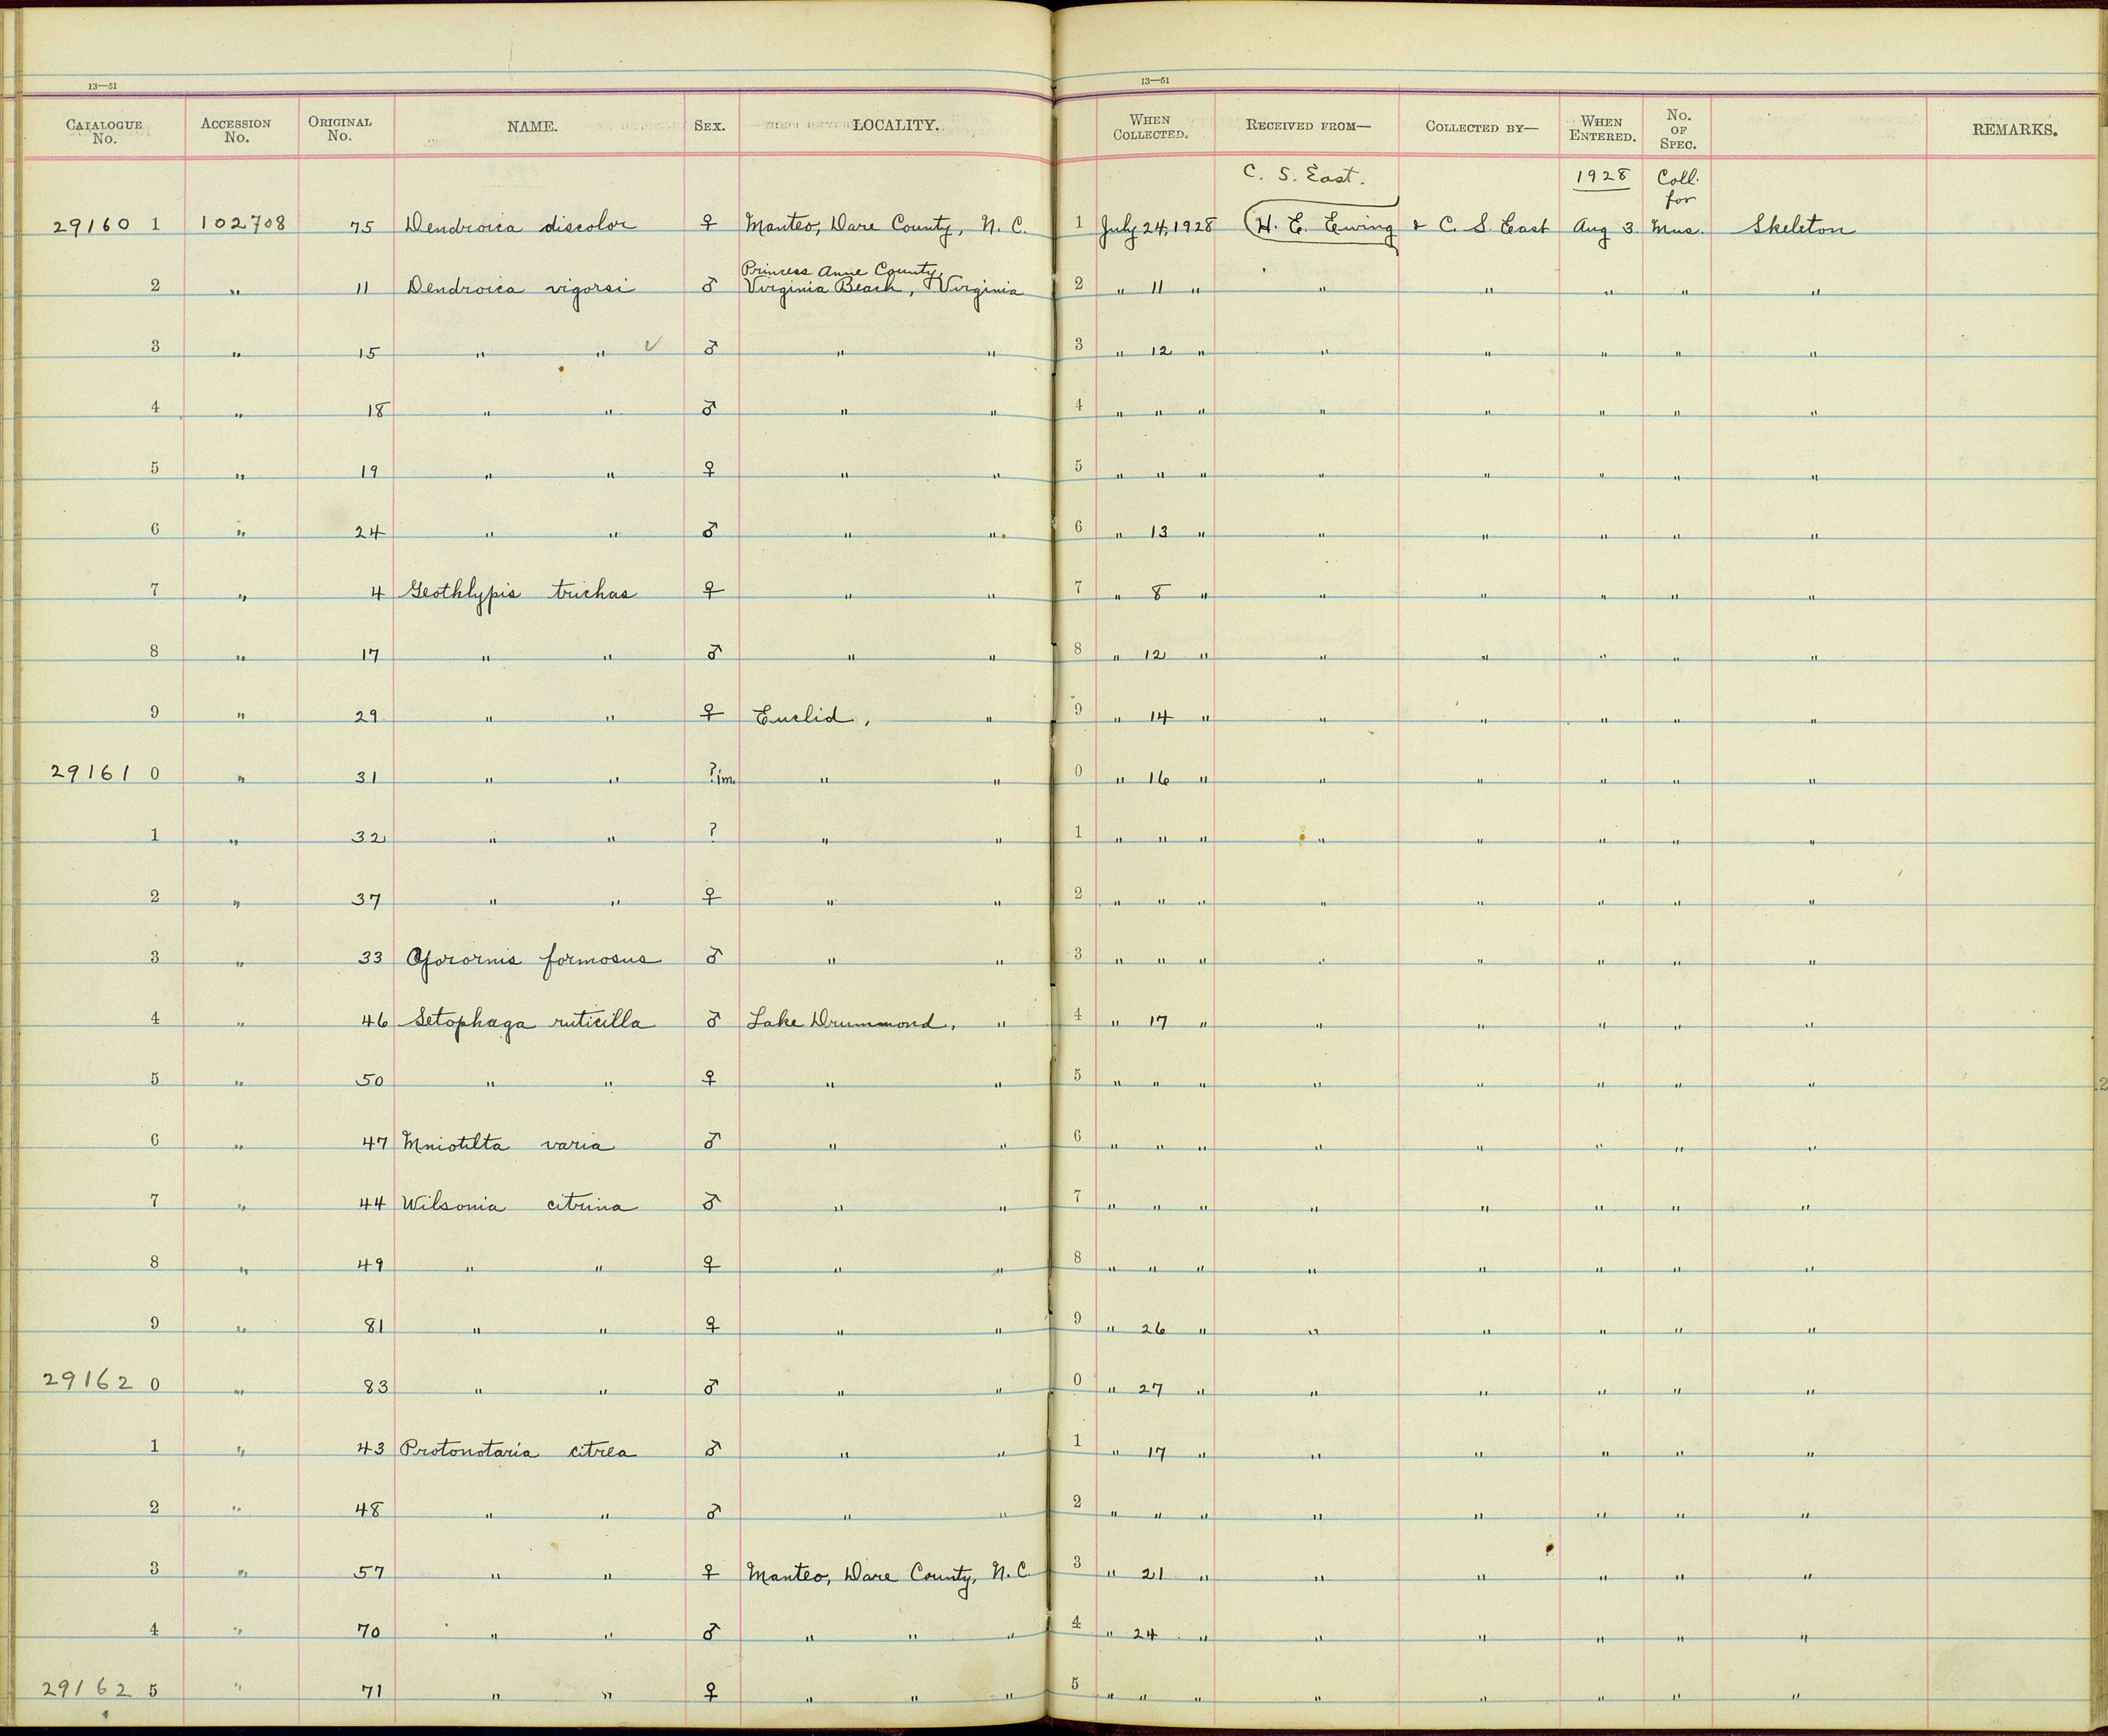 13—51 13—51
CATALOGUE No. ACCESSION No. ORIGINAL No. NAME. SEX. LOCALITY. WHEN COLLECTED. RECEIVED FROM— COLLECTED BY— WHEN ENTERED. No. OF SPEC. REMARKS.
C. S. East. 1928 Coll. for
29160 1 102708 75 Dendroica discolor ♀ Manteo, Dare County, N. C. 1 July 24, 1928 H. E. Ewing & C. S. East Aug 3. Mus. Skeleton
Princess Anne County,
2 " 11 Dendroica vigorsi ♂ Virginia Beach, Virginia 2 " 11 " " " " " "
3 " 15 " " ✓ ♂ " " 3 " 12 " " " " " "
4 " 18 " " ♂ " " 4 " " " " " " " "
5 " 19 " " ♀ " " 5 " " " " " " " "
6 " 24 " " ♂ " " 6 " 13 " " " " " "
7 " 4 Geothlypis trichas ♀ " " 7 " 8 " " " " " "
8 " 17 " " ♂ " " 8 " 12 " " " " " "
9 " 29 " " ♀ Euclid, " 9 " 14 " " " " " "
29161 0 " 31 " " ?im. " " 0 " 16 " " " " " "
1 " 32 " " ? " " 1 " " " " " " " "
2 " 37 " " ♀ " " 2 " " " " " " " "
3 " 33 Oporornis formosus ♂ " " 3 " " " " " " " "
4 " 46 Setophaga ruticilla ♂ Lake Drummond, " 4 " 17 " " " " " "
5 " 50 " " ♀ " " 5 " " " " " " " "
6 " 47 Mniotilta varia ♂ " " 6 " " " " " " " "
7 " 44 Wilsonia citrina ♂ " " 7 " " " " " " " "
8 " 49 " " ♀ " " 8 " " " " " " " "
9 " 81 " " ♀ " " 9 " 26 " " " " " "
29162 0 " 83 " " ♂ " " 0 " 27 " " " " " "
1 " 43 Protonotaria citrea ♂ " " 1 " 17 " " " " " "
2 " 48 " " ♂ " " 2 " " " " " " " "
3 " 57 " " ♀ Manteo, Dare County, N. C. 3 " 21 " " " " " "
4 " 70 " " ♂ " " " 4 " 24 " " " " " "
29162 5 " 71 " " ♀ " " " 5 " " " " " " " "